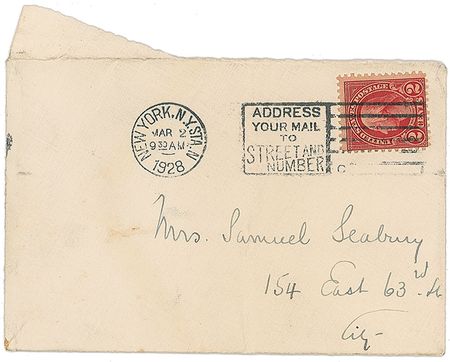 NEW YORK, N.Y. STA. N
MAR 2
9 30 AM
1928
ADDRESS
YOUR MAIL
TO
STREET AND
NUMBER
2
2
Mrs. Samuel Seabury
154 East 63rd St
City-